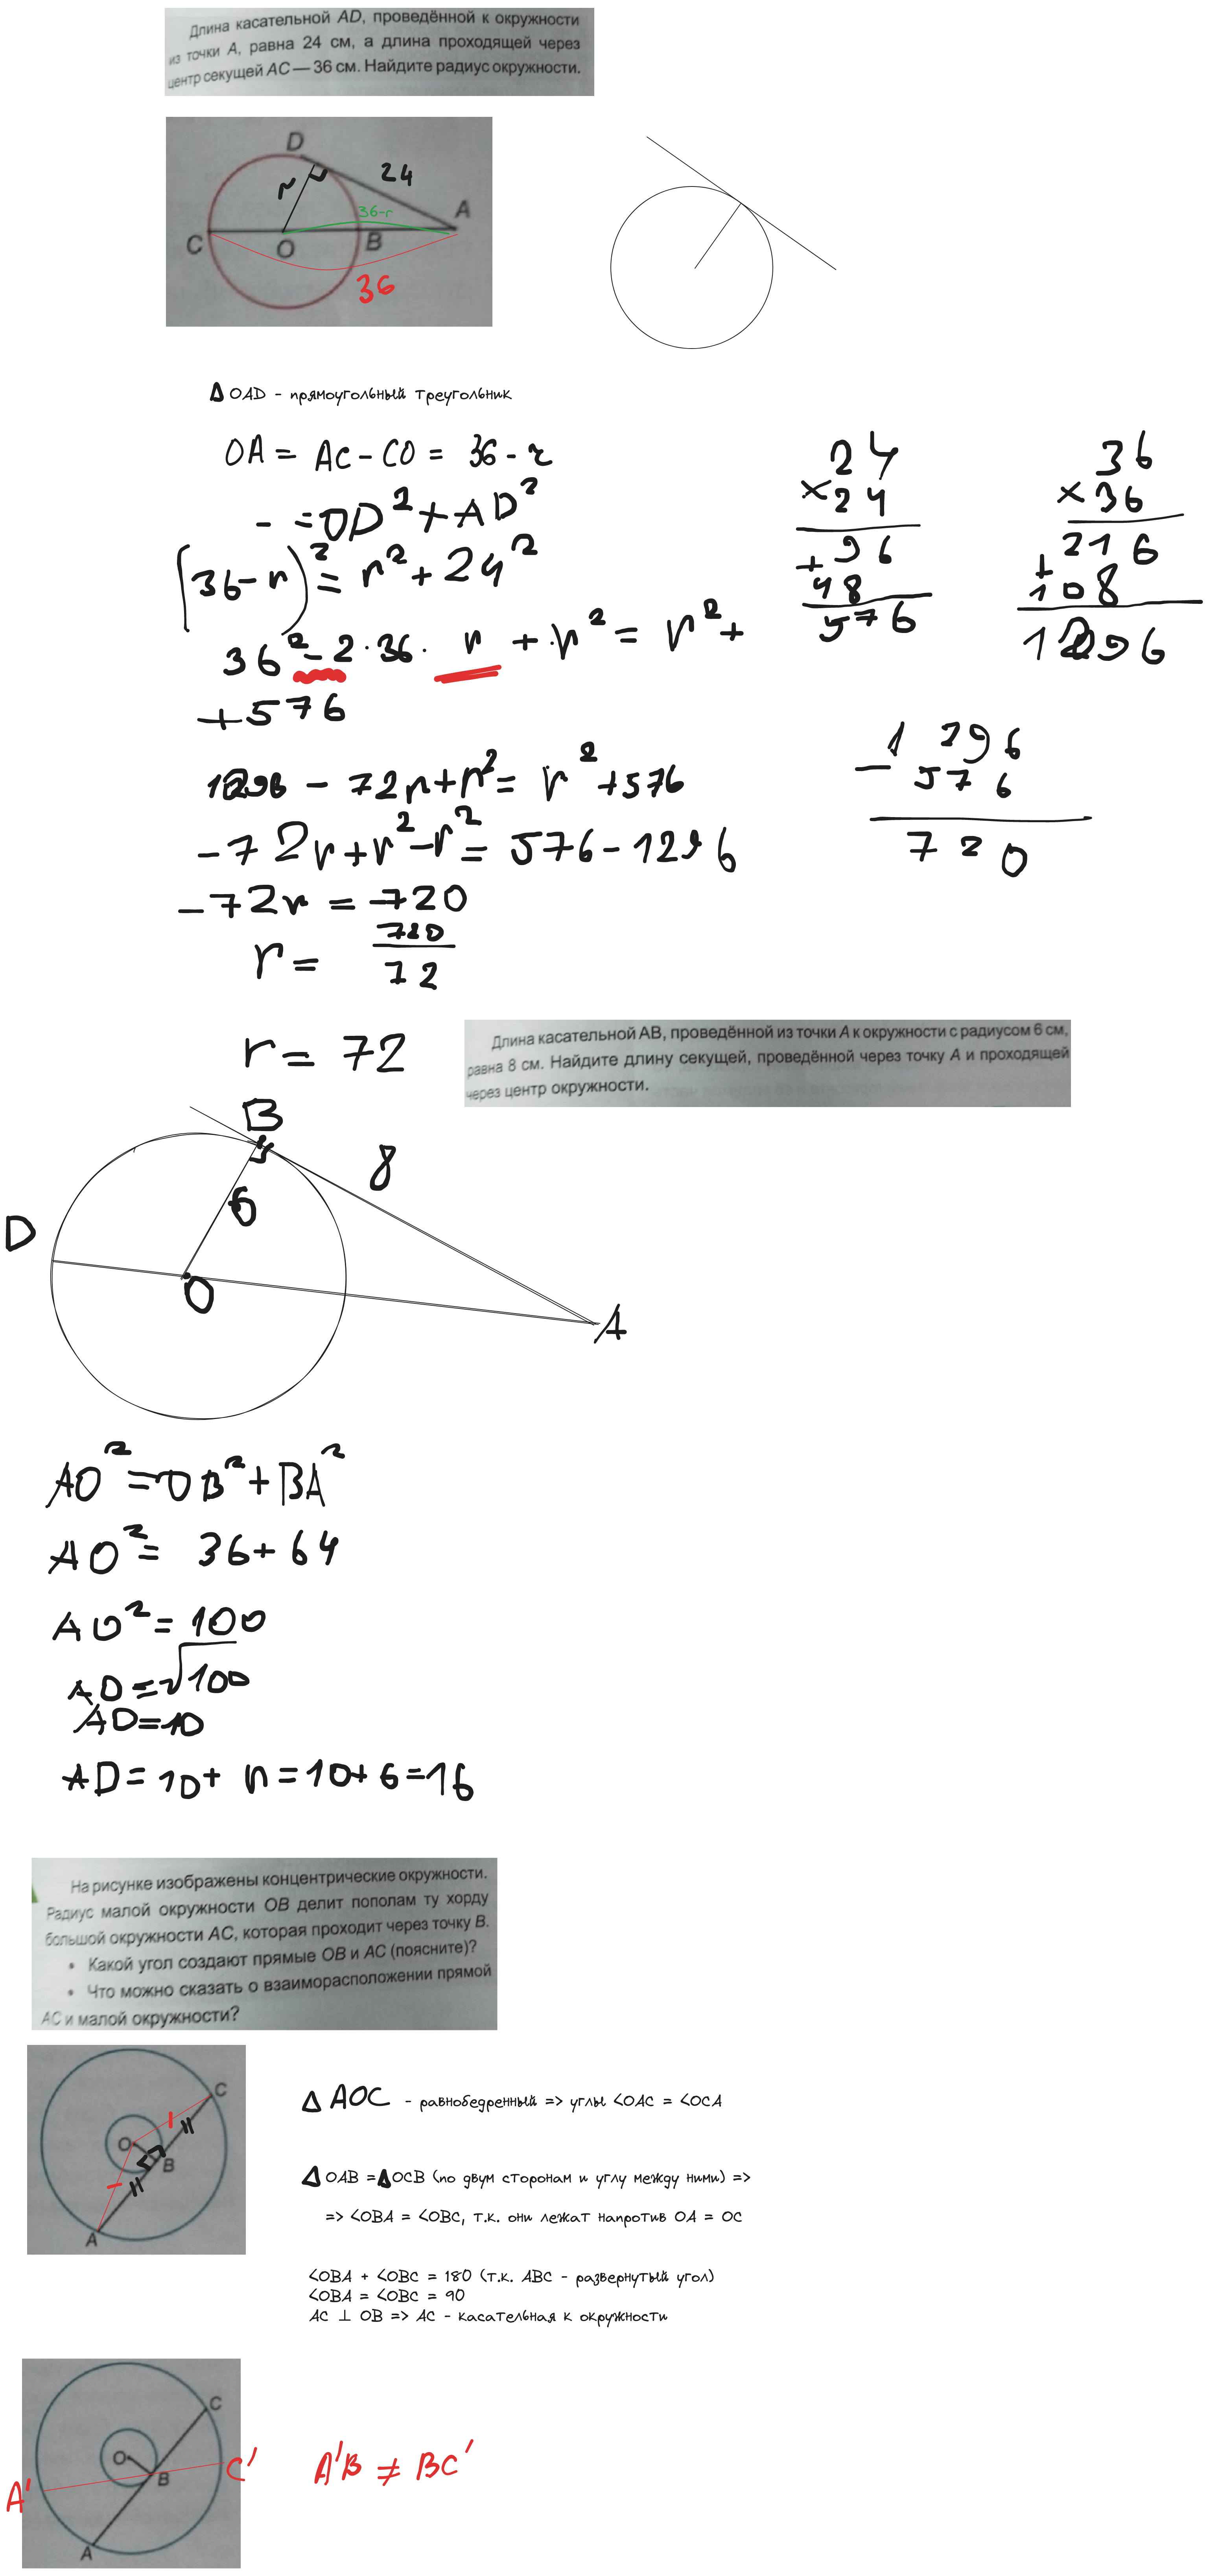 Длина касательной AD, проведённой к окружности
из точки A, равна 24 см, а длина проходящей через
центр секущей AC — 36 см. Найдите радиус окружности.
D
r
24
36-r
A
C
O
B
36
Δ OAD - прямоугольный треугольник
OA = AC - CO = 36 - r
- = OD² + AD²
(36 - r)² = r² + 24²
36² - 2 · 36 · r + r² = r² +
+ 576
1296 - 72r + r² = r² + 576
-72r + r² - r² = 576 - 1296
-72r = -720
r = 720/72
r = 72
24
× 24
96
+
48
576
36
× 36
216
+
108
1296
- 1296
576
720
Длина касательной AB, проведённой из точки A к окружности с радиусом 6 см,
равна 8 см. Найдите длину секущей, проведённой через точку A и проходящей
через центр окружности.
B
8
6
D
O
A
AO² = OB² + BA²
AO² = 36 + 64
AO² = 100
AO = √100
AO = 10
AD = 10 + r = 10 + 6 = 16
На рисунке изображены концентрические окружности.
Радиус малой окружности OB делит пополам ту хорду
большой окружности AC, которая проходит через точку B.
• Какой угол создают прямые OB и AC (поясните)?
• Что можно сказать о взаиморасположении прямой
AC и малой окружности?
C
O
B
A
Δ AOC - равнобедренный => углы ∠OAC = ∠OCA
Δ OAB = Δ OCB (по двум сторонам и углу между ними) =>
=> ∠OBA = ∠OBC, т.к. они лежат напротив OA = OC
∠OBA + ∠OBC = 180 (т.к. ABC - развернутый угол)
∠OBA = ∠OBC = 90
AC ⊥ OB => AC - касательная к окружности
C
O
B
C'
A'
A
A'B ≠ BC'